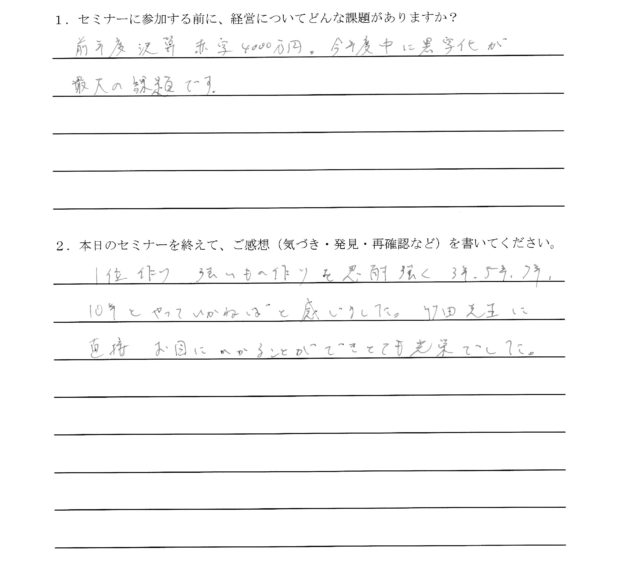 1．セミナーに参加する前に、経営についてどんな課題がありますか？
前年度決算 赤字4000万円。今年度中に黒字化が
最大の課題です。
2．本日のセミナーを終えて、ご感想（気づき・発見・再確認など）を書いてください。
1位作り 強いもの作りを忍耐強く 3年、5年、7年、
10年とやっていかねばと感じました。竹田先生に
直接 お目にかかることができとても光栄でした。